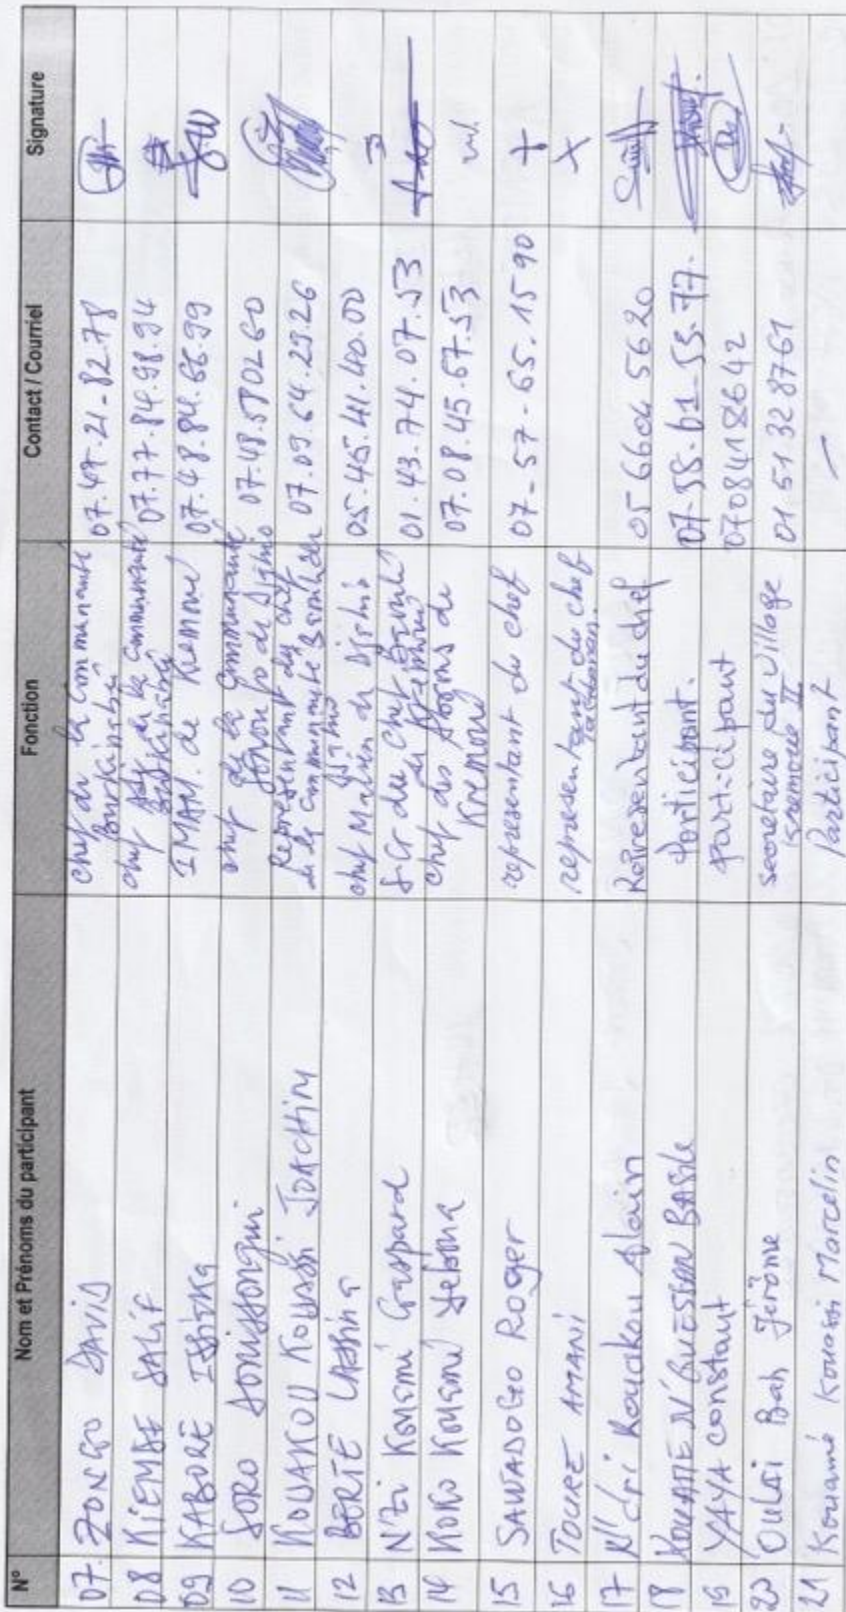 N° Nom et Prénoms du participant Fonction Contact / Courriel Signature
07. ZONGO DAVID chef de la communauté Burkinabé 07.47.21.82.78
08 KIEMDE SALIF chef de la communauté Burkinabé 07.77.84.98.94
09 KABORE ISSIAKA IMAM. de Kremoué 07.48.84.66.99
10 SORO chef de la communauté de 07.48.580260
11 KOUAKOU KOUASSI JOACHIM Representant du chef de la communauté 07.09.64.29.26
12 BERTE LASSINA chef Malien de 05.45.41.40.00
13 N'Zi Kouamé Gaspard SG du chef 01.43.74.07.53
14 KOKO Kouamé chef des de Kremoué 07.08.45.67.53
15 SAWADOGO Roger representant du chef 07-57-65.15 90
16 TOURE AMANI representant du chef
17 N'dri Kouakou Alain Representant du chef 05 6604 5620
18 KOUAME N'GUESSAN BASILE Participant. 07-58.61.55.77.
19 YAYA constant Participant 0708418642
20 OULAI Bah Jérôme secretaire du village Kremoué II 01 51 32 8761
21 Kouamé Kouassi Marcelin Participant —